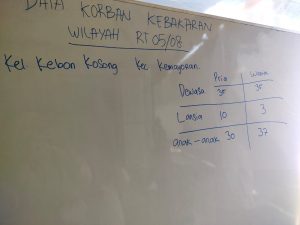 DATA KORBAN KEBAKARAN
WILAYAH RT 05/08
Kel Kebon Kosong Kec Kemayoran
Pria Wanita
Dewasa 35 35
Lansia 10 3
anak-anak 30 37